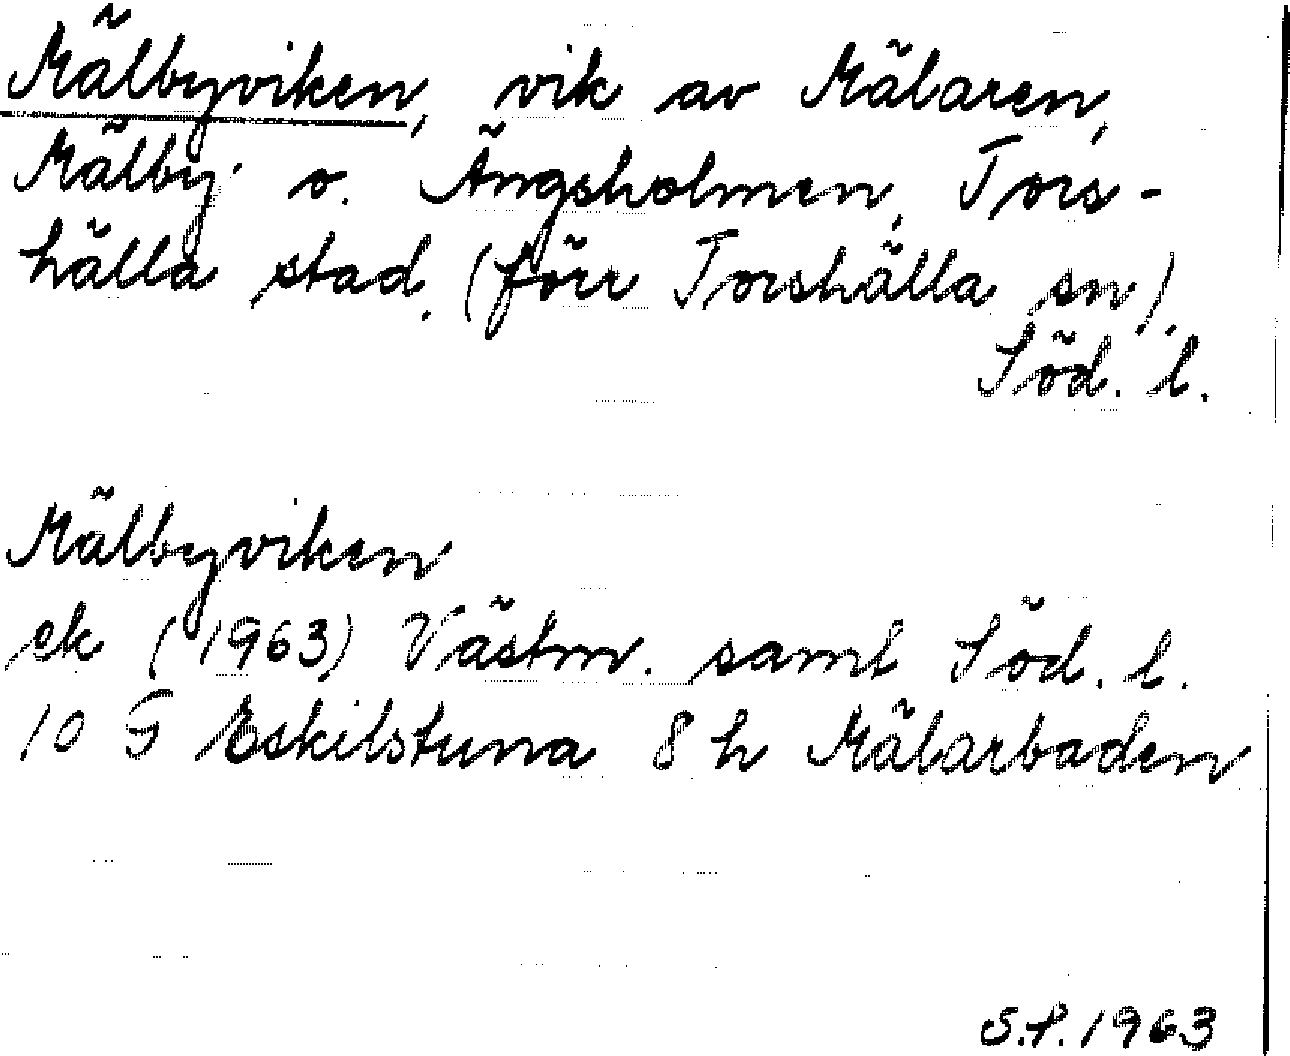 Mälbyviken, vik av Mälaren,
Mälby o. Ängsholmen, Tors-
hälla stad. (förr Torshälla sn).
Söd. l.
Mälbyviken
ek (1963) Västm. samt Söd. l.
10 G Eskilstuna 8 h Mälarbaden
S.P. 1963